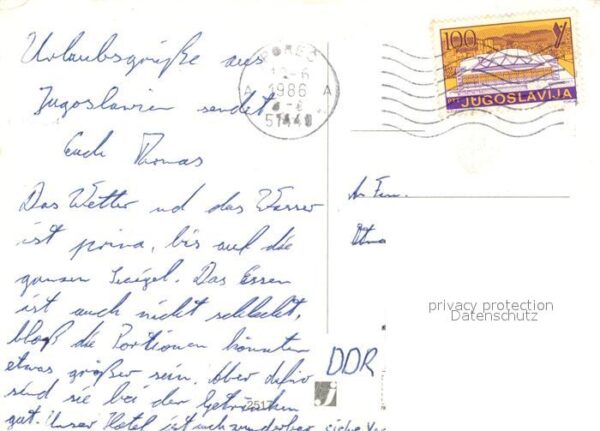 Urlaubsgrüße aus
Jugoslavien sendet
Euch Thomas
Das Wetter und das Wasser
ist prima, bis auf die
ganzen Seeigel. Das Essen
ist auch nicht schlecht,
bloß die Portionen könnten
etwas größer sein. Aber dafür
sind sie bei den Getränken
gut. Unser Hotel ist auch
POREČ
12-6
1986
A A
100
JUGOSLAVIJA
privacy protection
Datenschutz
DDR